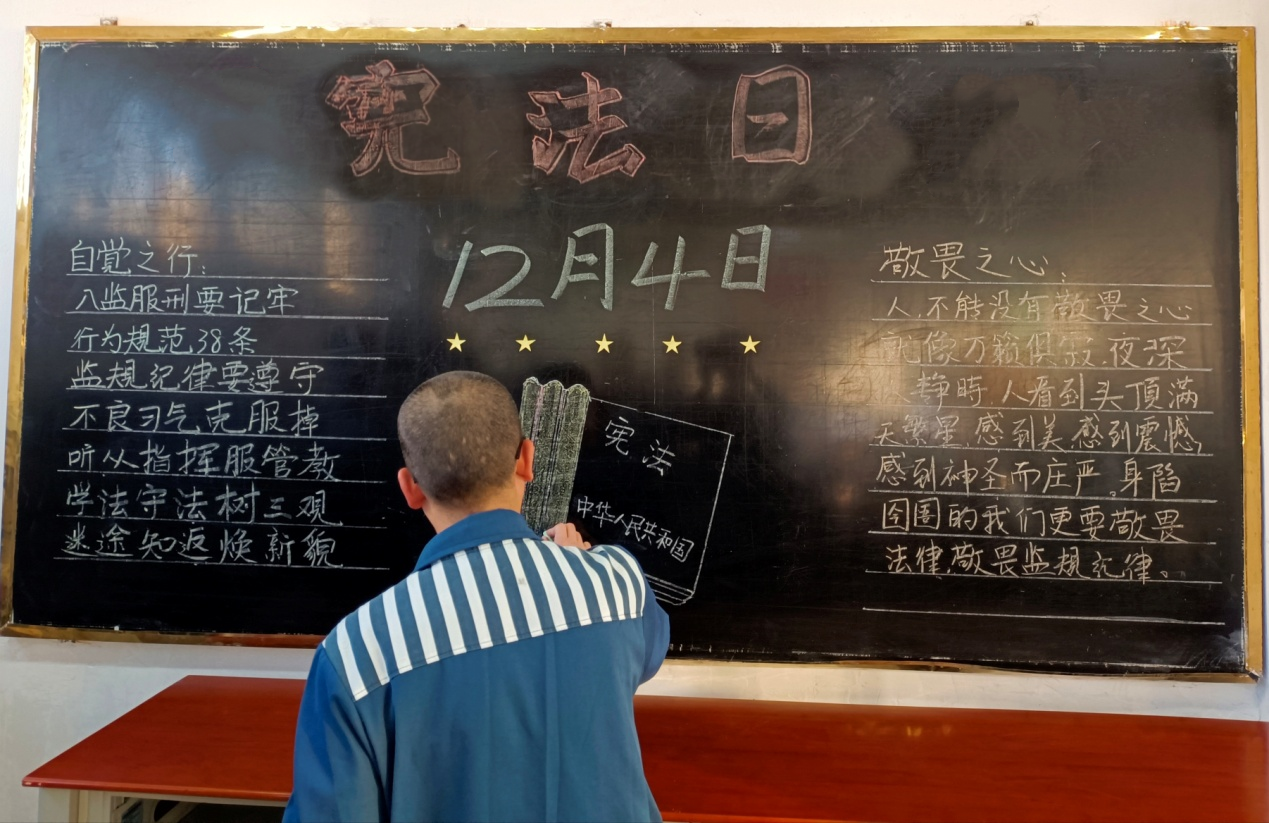 宪法日
12月4日
自觉之行:
入监服刑要记牢
行为规范38条
监规纪律要遵守
不良习气克服掉
听从指挥服管教
学法守法树三观
迷途知返焕新貌
宪法
中华人民共和国
敬畏之心:
人.不能没有敬畏之心
就像万籁俱寂.夜深
人静時.人看到头頂满
天繁星.感到美.感到震憾,
感到神圣而庄严。身陷
囹圄的我们更要敬畏
法律.敬畏监规纪律。